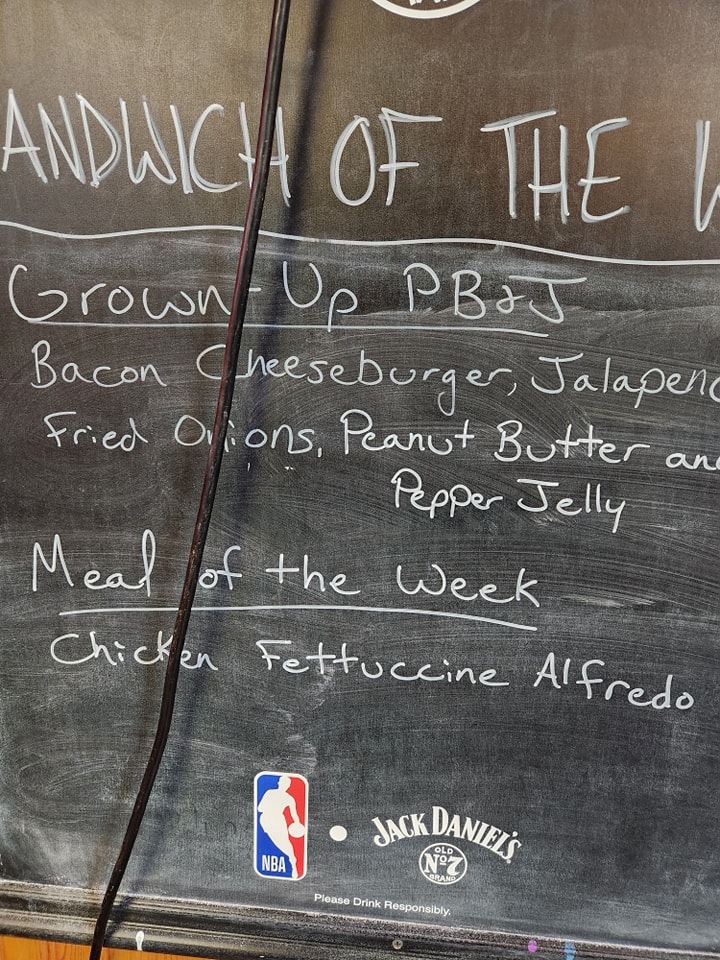 ANDWICH OF THE W
Grown-Up PB&J
Bacon Cheeseburger, Jalapeno
Fried Onions, Peanut Butter and
Pepper Jelly
Meal of the Week
Chicken Fettuccine Alfredo
NBA
JACK DANIEL'S
OLD
Nº7
BRAND
Please Drink Responsibly.